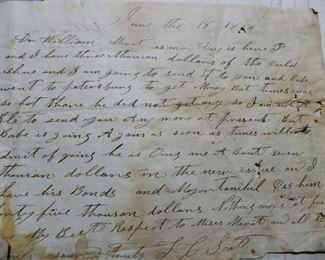 June the 18 1864
Dr William Merit as mr Day is here I
and I have three thousand dollars of the
ishue and I am going to send it to you and Babe
went to petersburg to get Money But times was
so hot thare he did not get any so I am not
Ble to send you Any more at present But
Babe is going Again as soon as times will
dmit of going he is Oing me A Bout seven
thousan dollars in the new ishue and I
have his Bonds and Major oes him
nty five thousan dollars Nothing more at
My Best Respect to and all
yours